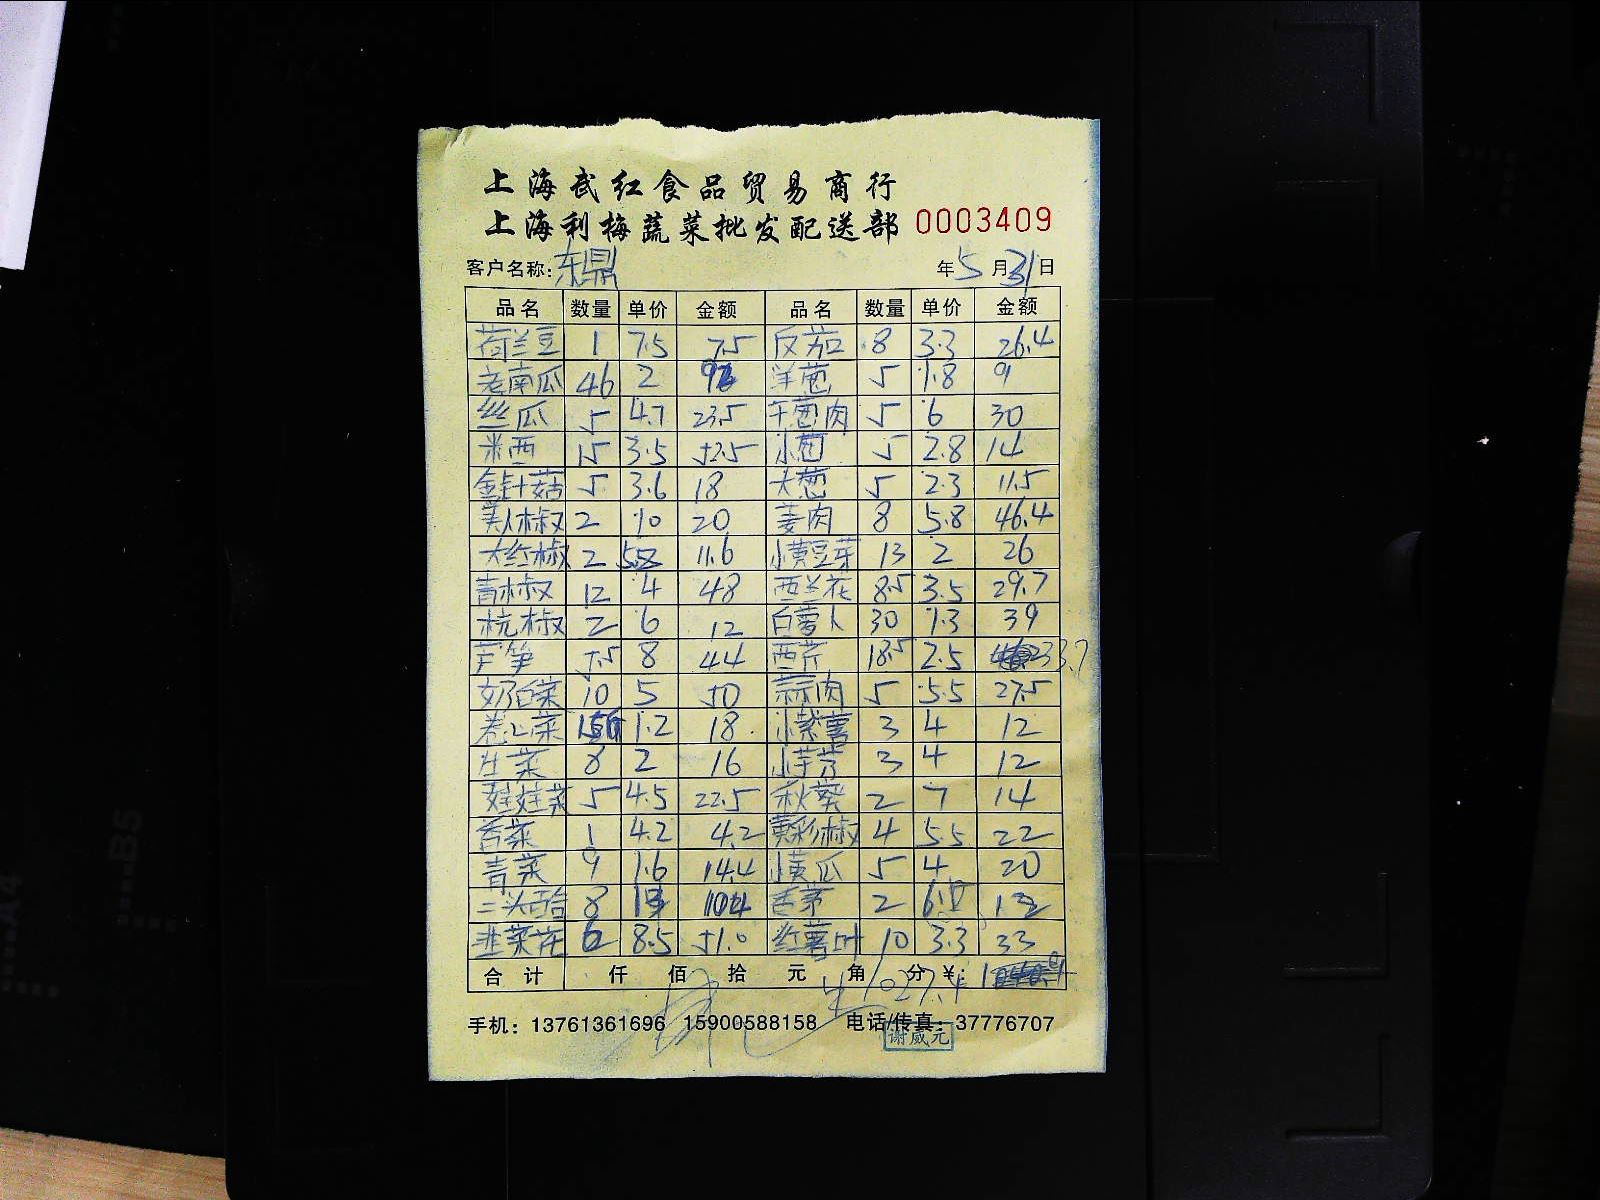 上海武红食品贸易商行
上海利梅蔬菜批发配送部 0003409
客户名称：东鼎 年5月31日
品名 数量 单价 金额 品名 数量 单价 金额
荷兰豆 1 7.5 7.5 反茄 8 3.3 26.4
老南瓜 46 2 92 洋葱 5 1.8 9
丝瓜 5 4.7 23.5 干葱肉 5 6 30
米西 15 3.5 52.5 小葱 5 2.8 14
金针菇 5 3.6 18 大葱 5 2.3 11.5
美人椒 2 10 20 姜肉 8 5.8 46.4
大红椒 2 5.8 11.6 小黄豆芽 13 2 26
青椒 12 4 48 西兰花 8.5 3.5 29.7
杭椒 2 6 12 白萝卜 30 1.3 39
芦笋 5.5 8 44 西芹 13.5 2.5 33.7
奶白菜 10 5 50 蒜肉 5 5.5 27.5
卷心菜 15 1.2 18 小紫薯 3 4 12
生菜 8 2 16 小芋艿 3 4 12
娃娃菜 5 4.5 22.5 秋葵 2 7 14
香菜 1 4.2 4.2 黄彩椒 4 5.5 22
青菜 9 1.6 14.4 小黄瓜 5 4 20
三头百合 8 13 104 香茅 2 6
韭菜花 6 8.5 51.0 红薯叶 10 3.3 33
合计 仟 佰 拾 元 角 分 ¥：
1027.4
手机：13761361696 15900588158 电话/传真：37776707
谢威元